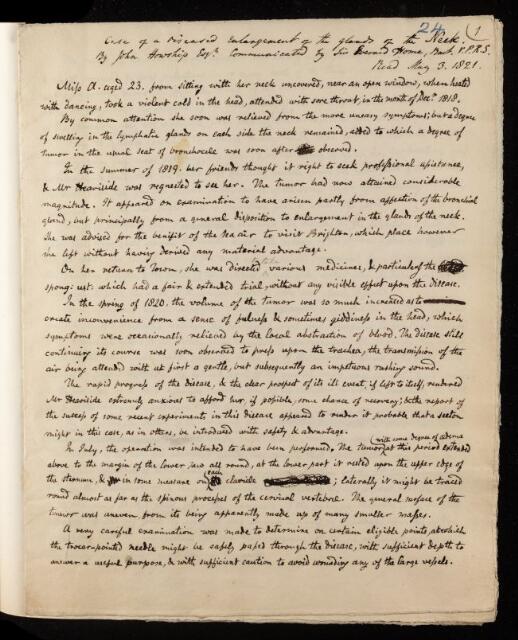 24
1
Case of a Diseased Enlargement of the glands of the Neck
By John Howship Esqr. Communicated by Sir Everard Home, Bart. V.P.R.S.
Read May 3. 1821.
Miss A. aged 23. from sitting with her neck uncovered, near an open window, when heated
with dancing, took a violent cold in the head, attended with sore throat, in the month of Decr. 1818.
By common attention she soon was relieved from the more uneasy symptoms; but a degree
of swelling in the lymphatic glands on each side the neck remained, added to which a degree of
tumor in the usual seat of bronchocele was soon after observed.
In the summer of 1819. her friends thought it right to seek professional assistance,
& Mr Heaviside was requested to see her. The tumor had now attained considerable
magnitude. It appeared on examination to have arisen partly from affection of the bronchial
gland, but principally from a general disposition to enlargement in the glands of the neck.
She was advised for the benefit of the sea air to visit Brighton, which place however
she left without having derived any material advantage.
On her return to Town, she was directed various medicines, & particularly the
spong: ust: which had a fair & extended trial, without any visible effect upon the disease.
In the spring of 1820. the volume of the tumor was so much increased as to
create inconvenience from a sense of fulness & sometimes giddiness in the head, which
symptoms were occasionally relieved by the local abstraction of blood. The disease still
continuing its course was soon observed to press upon the trachea, the transmission of the
air being attended with at first a gentle, but subsequently an impetuous rushing sound.
The rapid progress of the disease, & the clear prospect of its ill event, if left to itself, rendered
Mr Heaviside extremely anxious to afford her, if possible, some chance of recovery; & the report of
the success of some recent experiments in this disease appeared to render it probable that a seton
might in this case, as in others, be introduced with safety & advantage.
In July, the operation was intended to have been performed. The tumor (with some degree of œdema) at this period extended
above to the margin of the lower jaw all round, at the lower part it rested upon the upper edge of
the sternum, & in some measure on each clavicle; laterally it might be traced
round almost as far as the spinous processes of the cervical vertebræ. The general surface of the
tumor was uneven from its being apparently made up of many smaller masses.
A very careful examination was made to determine on certain eligible points, at which
the trocar-pointed needle might be safely passed through the disease, with sufficient depth to
answer a useful purpose, & with sufficient caution to avoid wounding any of the large vessels.